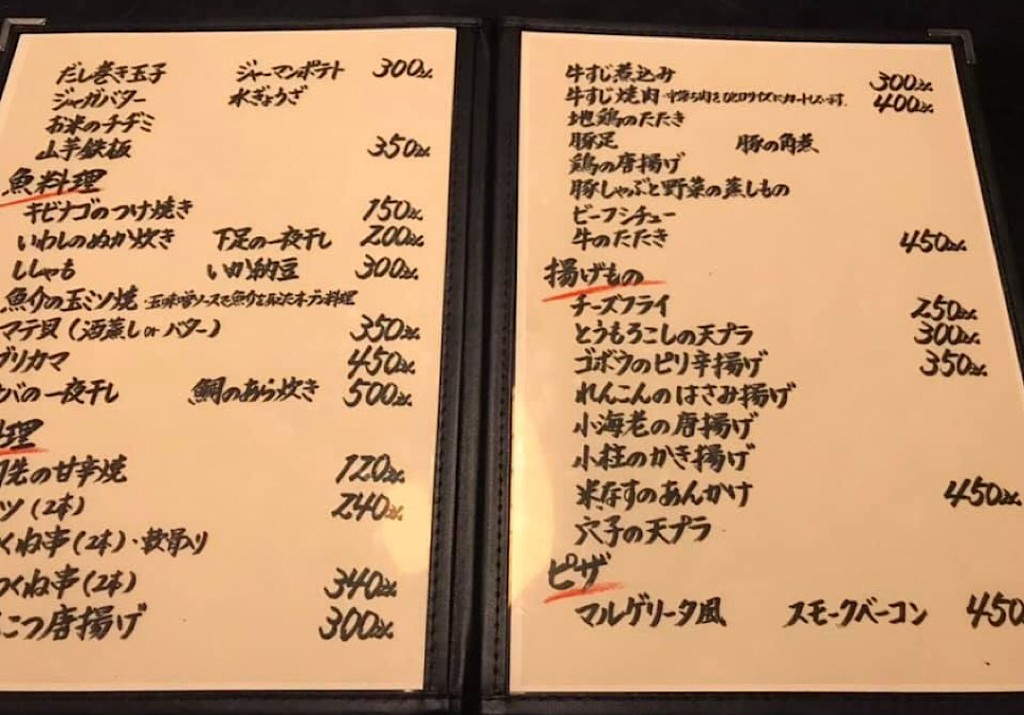 だし巻き玉子 ジャーマンポテト 300
ジャガバター 水ぎょうざ
お米のチヂミ
山芋鉄板 350
魚料理
キビナゴのつけ焼き 150
いわしのぬか炊き 下足の一夜干し 200
ししゃも いか納豆 300
魚介の玉ミソ焼
マテ貝(酒蒸しorバター) 350
ブリカマ 450
バの一夜干し 鯛のあら炊き 500
理
先の甘辛焼 120
ツ(2本) 240
くね串(2本)・軟骨入り
くね串(2本) 340
こつ唐揚げ 300
牛すじ煮込み 300
牛すじ焼肉 400
地鶏のたたき
豚足 豚の角煮
鶏の唐揚げ
豚しゃぶと野菜の蒸しもの
ビーフシチュー
牛のたたき 450
揚げもの
チーズフライ 250
とうもろこしの天プラ 300
ゴボウのピリ辛揚げ 350
れんこんのはさみ揚げ
小海老の唐揚げ
小柱のかき揚げ
米なすのあんかけ 450
穴子の天プラ
ピザ
マルゲリータ風 スモークベーコン 450